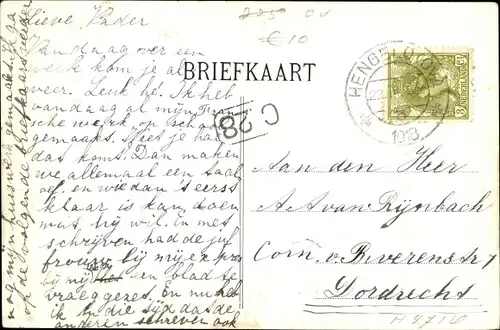 Lieve Vader
Vandaag over een
werk kom je al
weer. Leuk hè. Ik heb
vandaag al mijn Fran
sche werk op school
gemaakt. Weet je hoe
dat komt. Dan maken
we allemaal een taal
en wie dan 't eerst
klaar is kan doen
wat hij wil. En met
schrijven had de juf
frouw bij mij
bij mij een blad te
En nu heb
ik in die tijd das de
anderen schreven ook
nog mijn huiswerk gemaakt. Ik ga
op de volgende briefkaart verder
225 ov
€10
BRIEFKAART
C 28
HENGELO (O)
1918
NEDERLAND
Aan den Heer
A. A. van Rijnbach
Corn. v. Beverenstr 7
Dordrecht